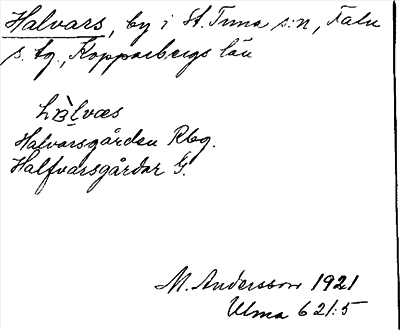 Halvars, by i St. Tuna s:n, Falu
s. tg., Kopparbergs län
hàlvæs
Halvarsgården Rbg.
Halfvarsgårdar G.
M. Andersson 1921
Ulma 621:5